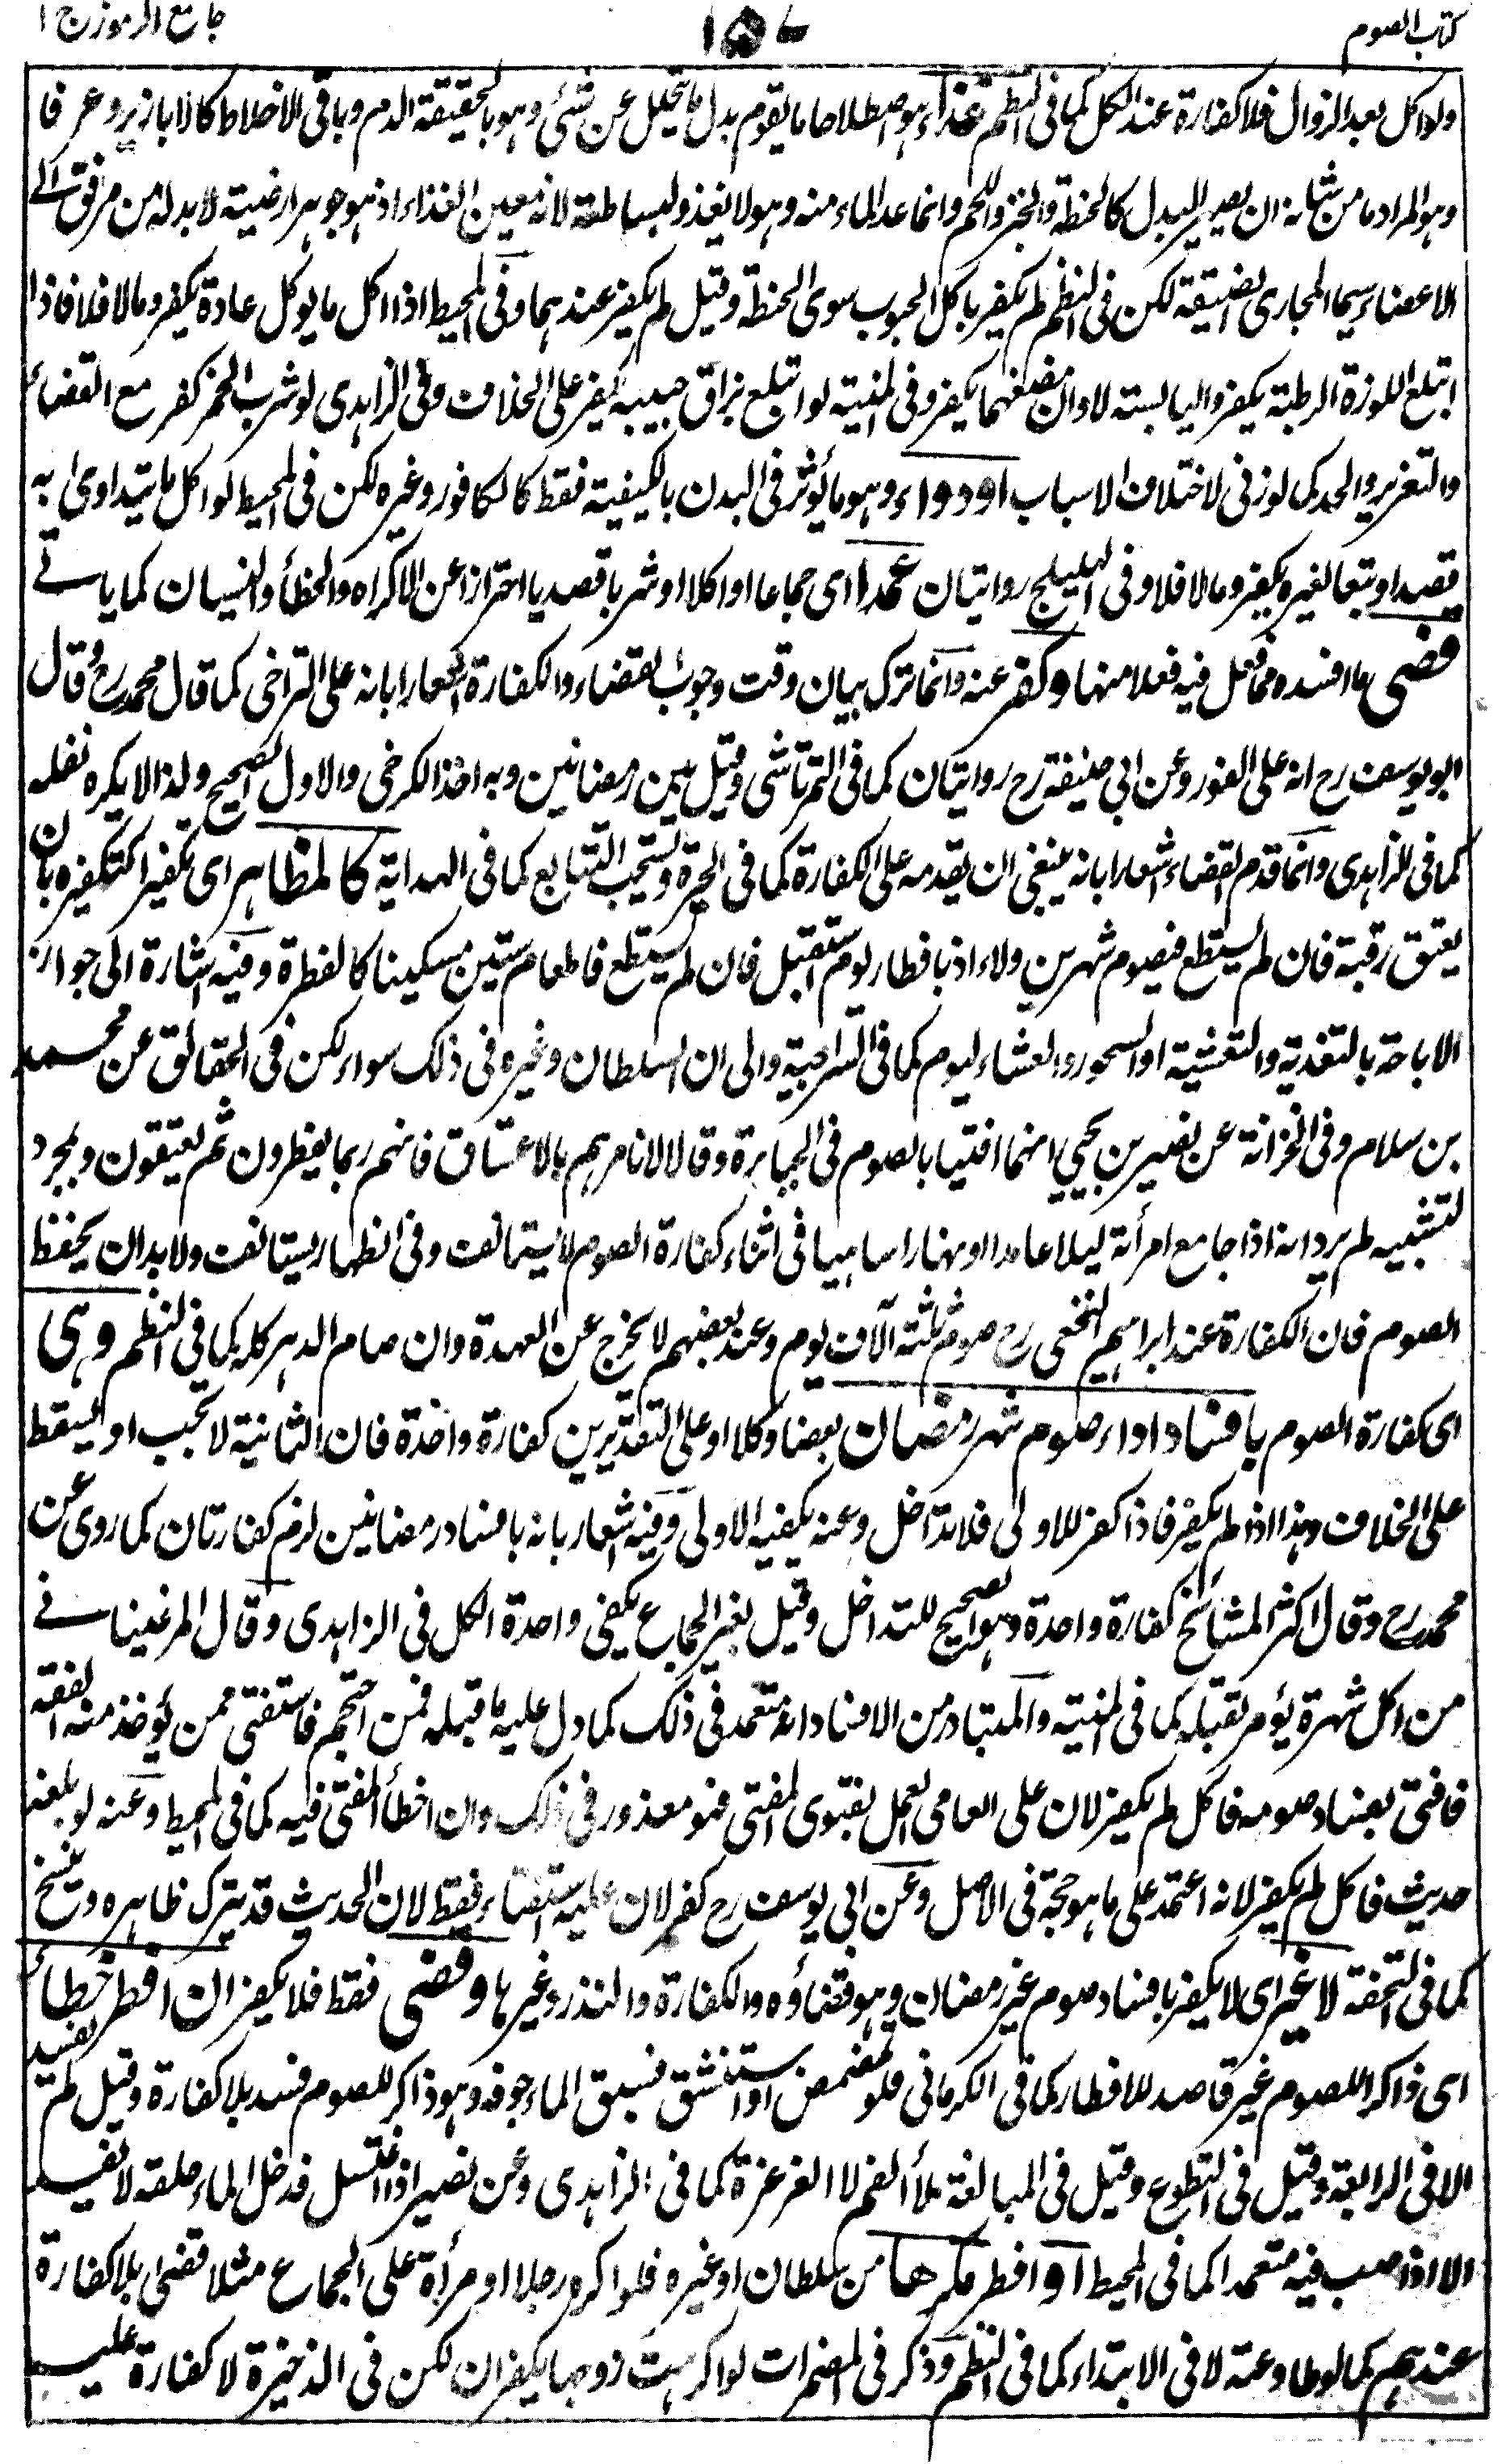 كتاب الصوم
١٥٧
جامع الرموز ج ١
ولو اكل بعد الزوال فلا كفارة عند الكل كما فى النظم غذاء هو اصطلاحا ما يقوم بدل ما يتحلل عن شئ وهو بالحقيقة الدم وباقى الاخلاط كالابازير وعرفا
وهو المراد ما من شانه ان يصير البدل كالحنطة والخبز واللحم وانما عد الماء منه وهو لا يغذو لبساطته لانه معين الغذاء اذ هو جوهر ارضية لابد له من مرقق الے
الاعضاء سيما المجارى الضيقة لكن فى النظم لم يكفر باكل الحبوب سوى الحنطة وقيل لم يكفر عندهما وفى المحيط اذا اكل ما يوكل عادة يكفر وما لا فلا فاذا
ابتلع اللوزة الرطبة يكفر واليابسته لا وان مضغهما يكفر وفى المنية لو ابتلع بزاق حبيبه يكفر على الخلاف وفى الزاهدى لو شرب الخمر كفر مع القضاء
والتعزير والحد كما لو زنى لاختلاف الاسباب او دواء وهو ما يؤثر فى البدن بالكيفية فقط كالكافور وغيره لكن فى المحيط لو اكل ما يتداوى به
قصدا وتبعا لغيره يكفر وما لا فلا وفى الهليلج روايتان عمدا اى جماعا او اكلا او شربا قصديا احترازا عن الاكراه والخطأ والنسيان كما ياتے
قضى ما افسده مما فعل فيه فعلا منها وكفر عنه وانما ترك بيان وقت وجوب القضاء والكفارة اشعارا بانه على التراخى كما قال محمد رح وقال
ابو يوسف رح انه على الفور وعن ابى حنيفة رح روايتان كما فى التمرتاشى وقيل بين رمضانين وبه اخذ الكرخى والاول الصحيح ولذا لا يكره نفله
كما فى الزاهدى وانما قدم القضاء اشعارا بانه ينبغى ان يقدمه على الكفارة كما فى الحرة ويستحب التتابع كما فى الهداية كالمظاهر اى تكفيرا كتكفيره بان
يعتق رقبة فان لم يستطع فيصوم شهرين ولاء اذ بافطار يوم استقبل فان لم يستطع فاطعام ستين مسكينا كالفطرة وفيه اشارة الى جواز
الاباحة بالتغدية والتعشية او السحور والعشاء ليوم كما فى السراجية والى ان السلطان وغيره فى ذلك سواء لكن فى الحقائق عن محمد
بن سلام وفى الخزانة عن نصير بن يحيي انهما افتيا بالصوم فى الجبابرة وقالا لا نامرهم بالاعتاق فانهم ربما يفطرون ثم يعتقون وبمجرد
لتشبيه لم يرد انه اذا جامع امرأته ليلا عامدا او نهارا ساهيا فى اثناء كفارة الصوم لا يستانف وفى الظهار يستانف ولابد ان يحفظ
الصوم فان الكفارة عند ابراهيم النخعى رح صوم ثلثة آلاف يوم وعند بعضهم لا يخرج عن العهدة وان صام الدهر كله كما فى النظم وهى
اى كفارة الصوم بافساد اداء صوم شهر رمضان بعضا وكلا وعلى التقديرين كفارة واحدة فان الثانية لا تجب او يسقط
على الخلاف وهذا اذا لم يكفر فاذا كفر للاولى فلا تداخل وعنه يكفيه الاولى وفيه اشعار بانه بافساد رمضانين لزم كفارتان كما روى عن
محمد رح وقال اكثر المشائخ كفارة واحدة وهو الصحيح للتداخل وقيل لغير الجماع يكفى واحدة الكل فى الزاهدى وقال المرغينانے
من اكل شهرة يؤمر بقتله كما فى المنية والمتبادر من الافساد انه متعمد فى ذلك كما دل عليه ما قبله فمن احتجم فاستفتى ممن يؤخذ منه الفقه
فافتى بفساد صومه فاكل لم يكفر لان على العامى العمل بفتوى المفتى فهو معذور فى ذلك وان اخطأ المفتى فيه كما فى المحيط وعنه لو بلغه
حديث فاكل لم يكفر لانه اعتمد على ما هو حجة فى الاصل وعن ابى يوسف رح كفر لان عليه استفتاء فقط لان الحديث قد يترك ظاهره وينسخ
كما فى التحفة لا غير اى لا يكفر بافساد صوم غير رمضان وهو قضاؤه والكفارة والنذر وغيرها وقضى فقط فلا يكفر ان افطر خطاء
اى ذاكرا للصوم غير قاصد للافطار كما فى الكرمانى فلو تمضمض او استنشق فسبق الماء جوفه وهو ذاكر للصوم فسد بلا كفارة وقيل لم يفسد
الا فى الرابعة وقيل فى التطوع وقيل فى المبالغة ملأ الفم لا الغرغرة كما فى الزاهدى وعن نصير اذا اغتسل فدخل الماء حلقه لا يفسد
الا اذا صب فيه متعمدا كما فى المحيط او افطر مكرها من سلطان او غيره فلو اكره رجلا او مرأة على الجماع مثلا قضى بلا كفارة
عندهم كما لو طاوعته لا فى الابتداء كما فى النظم وذكر فى المضمرات لو اكرهت زوجها يكفران لكن فى الذخيرة لا كفارة عليه